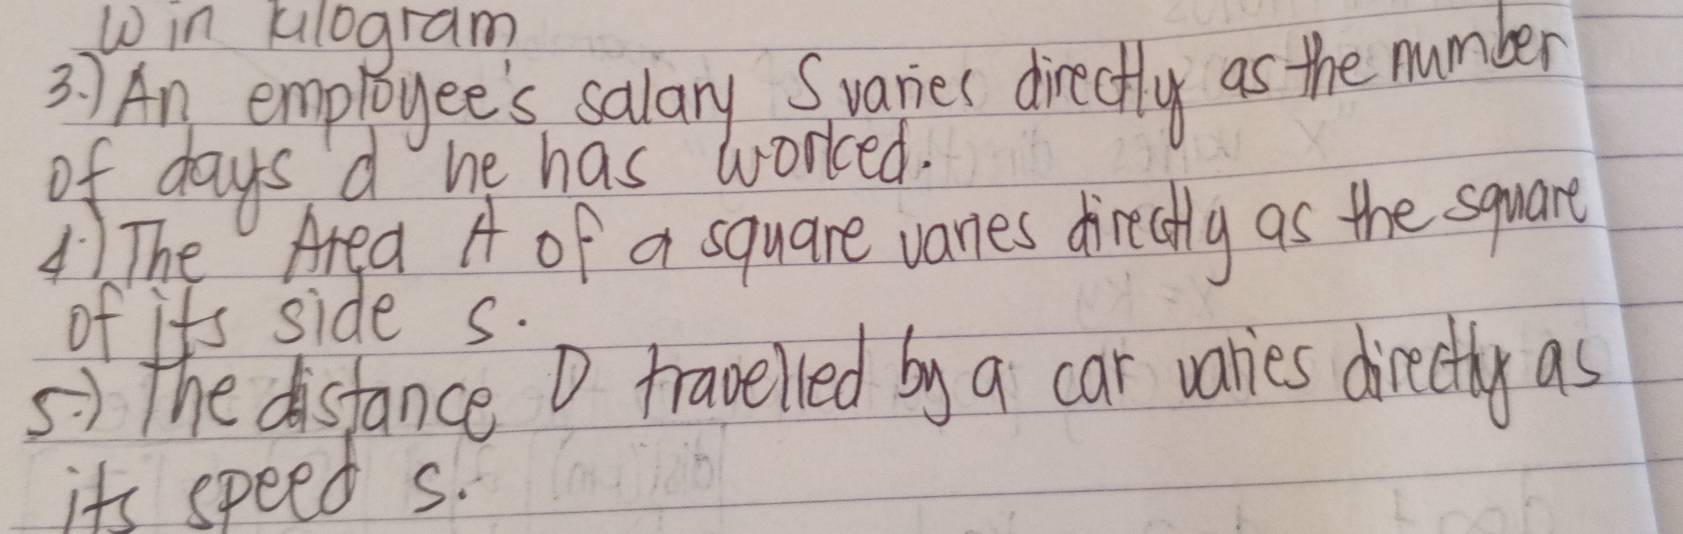 W in kilogram
3.) An employee's salary S varies directly as the number
of days d he has worked.
4.) The Area A of a square varies directly as the square
of its side s.
5.) The distance D travelled by a car varies directly as
its speed s.